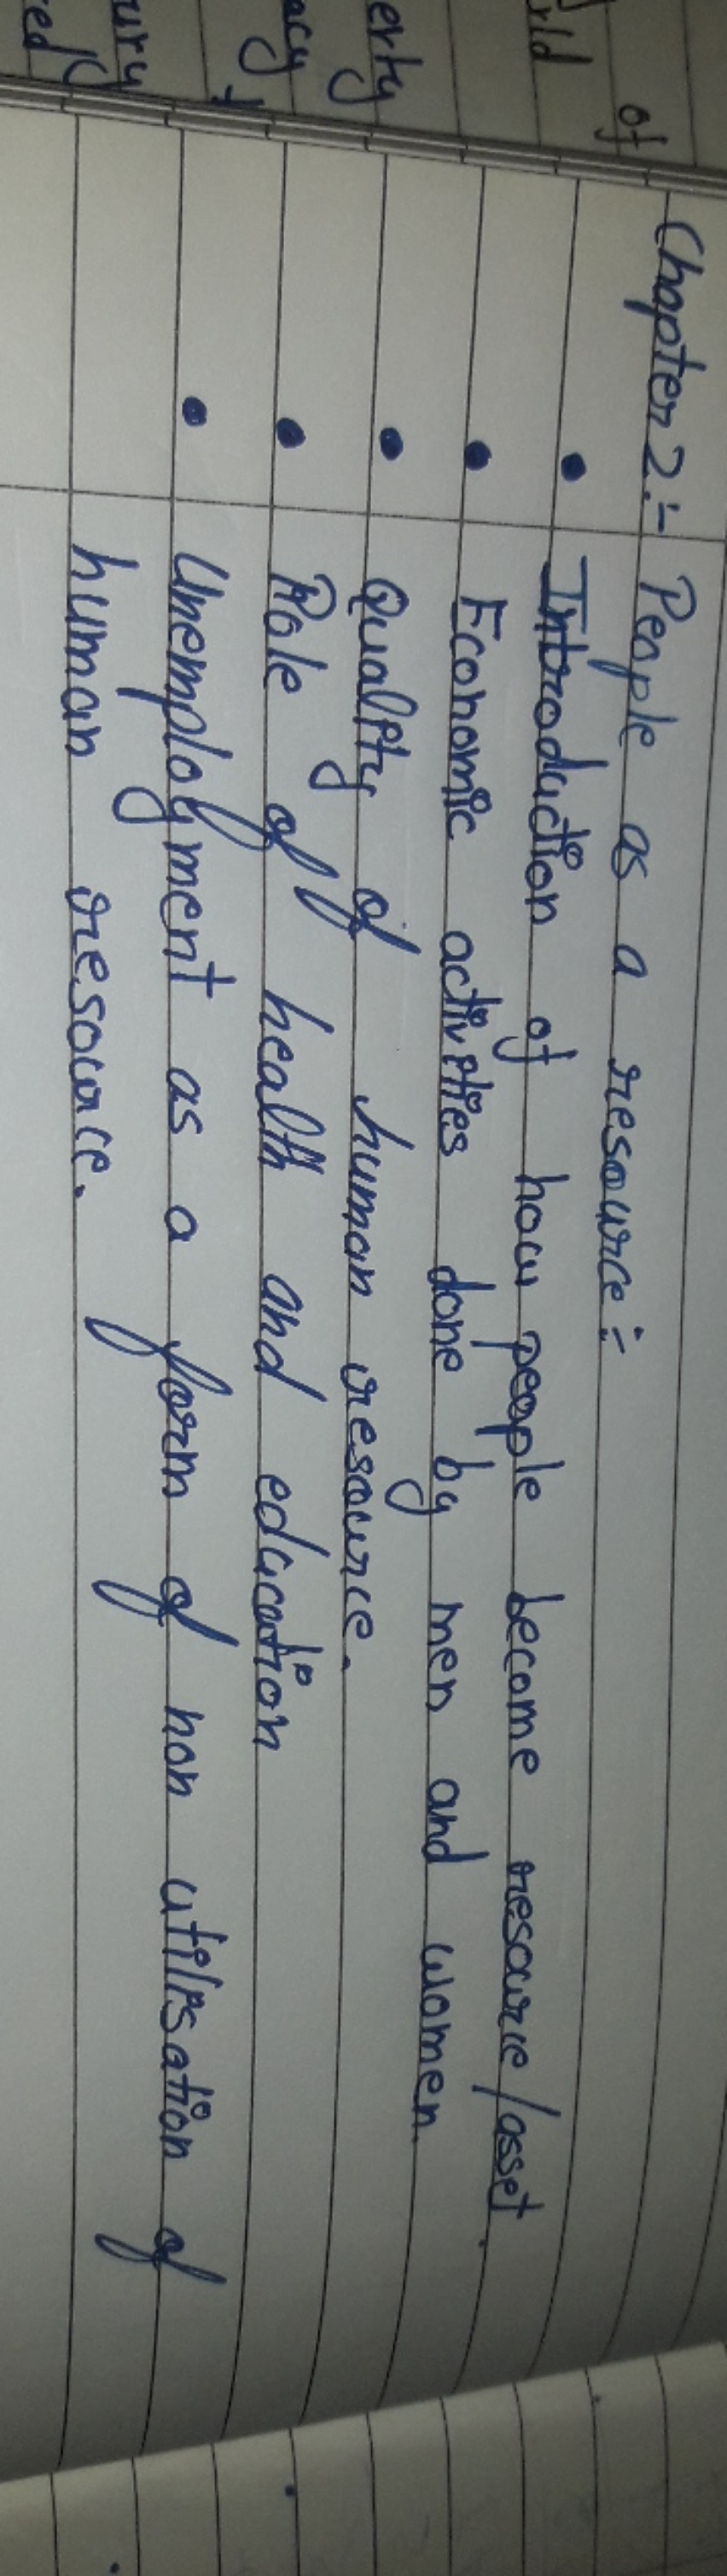 Chapter 2:- People as a resource:-
• Introduction of how people become resource/asset.
• Economic activities done by men and women.
• Quality of human resource.
• Role of health and education
• Unemployment as a form of non utilisation of
human resource.
of
rld
erty
acy
ury